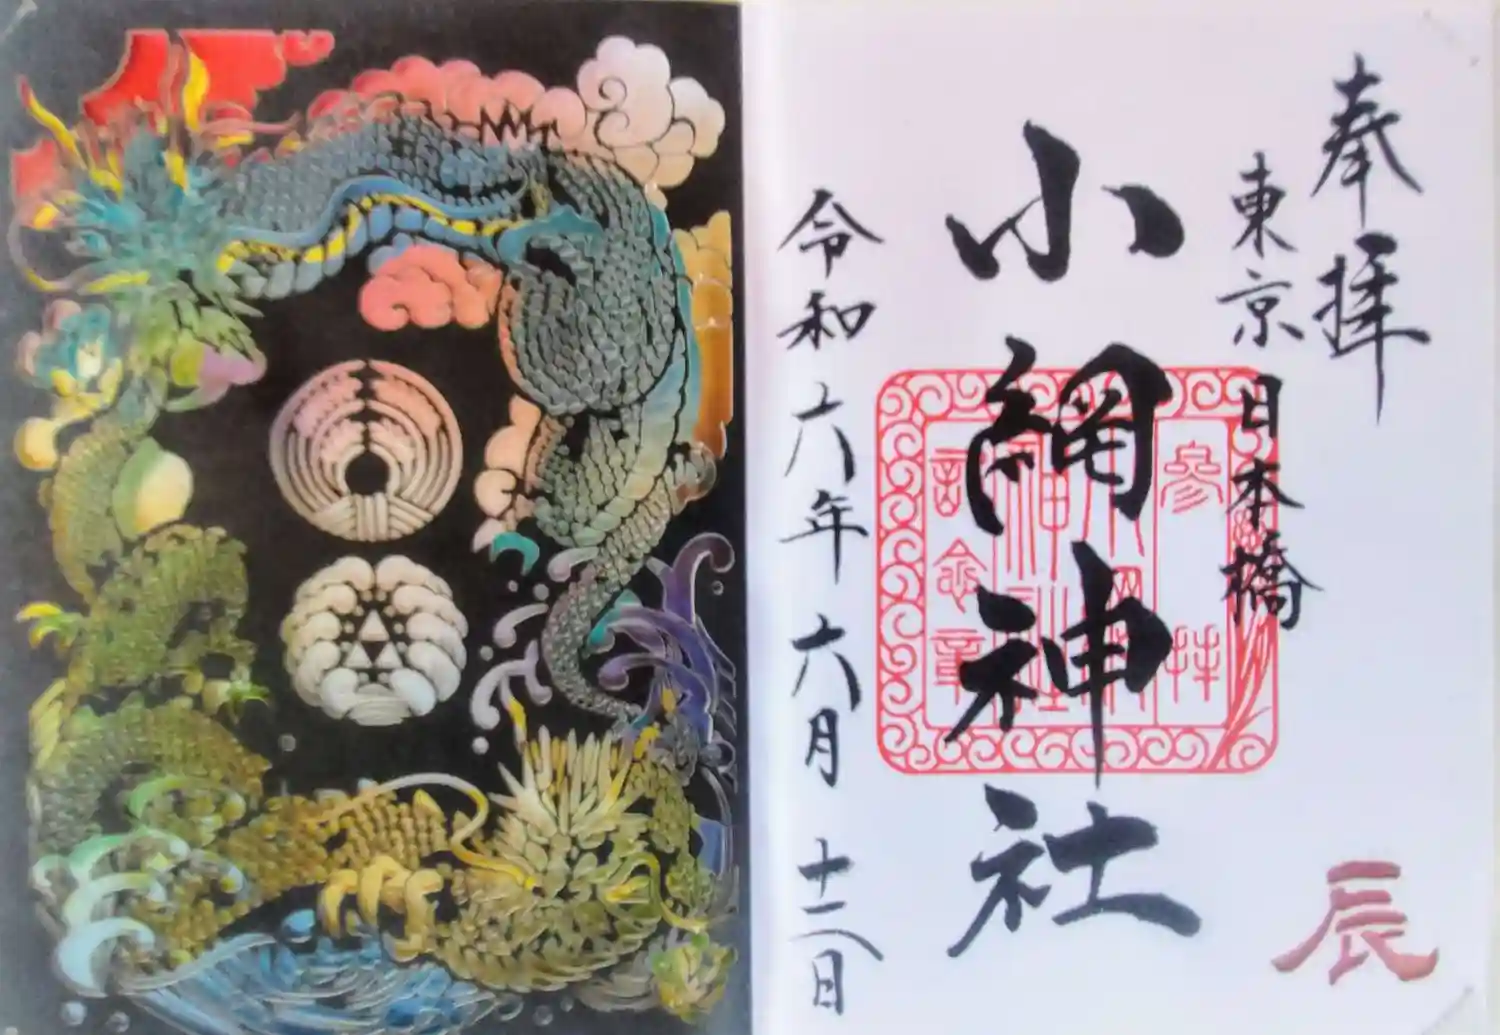 奉拝
東京日本橋
辰
小網神社
参拝
小網神社
記念章
令和六年六月十二日